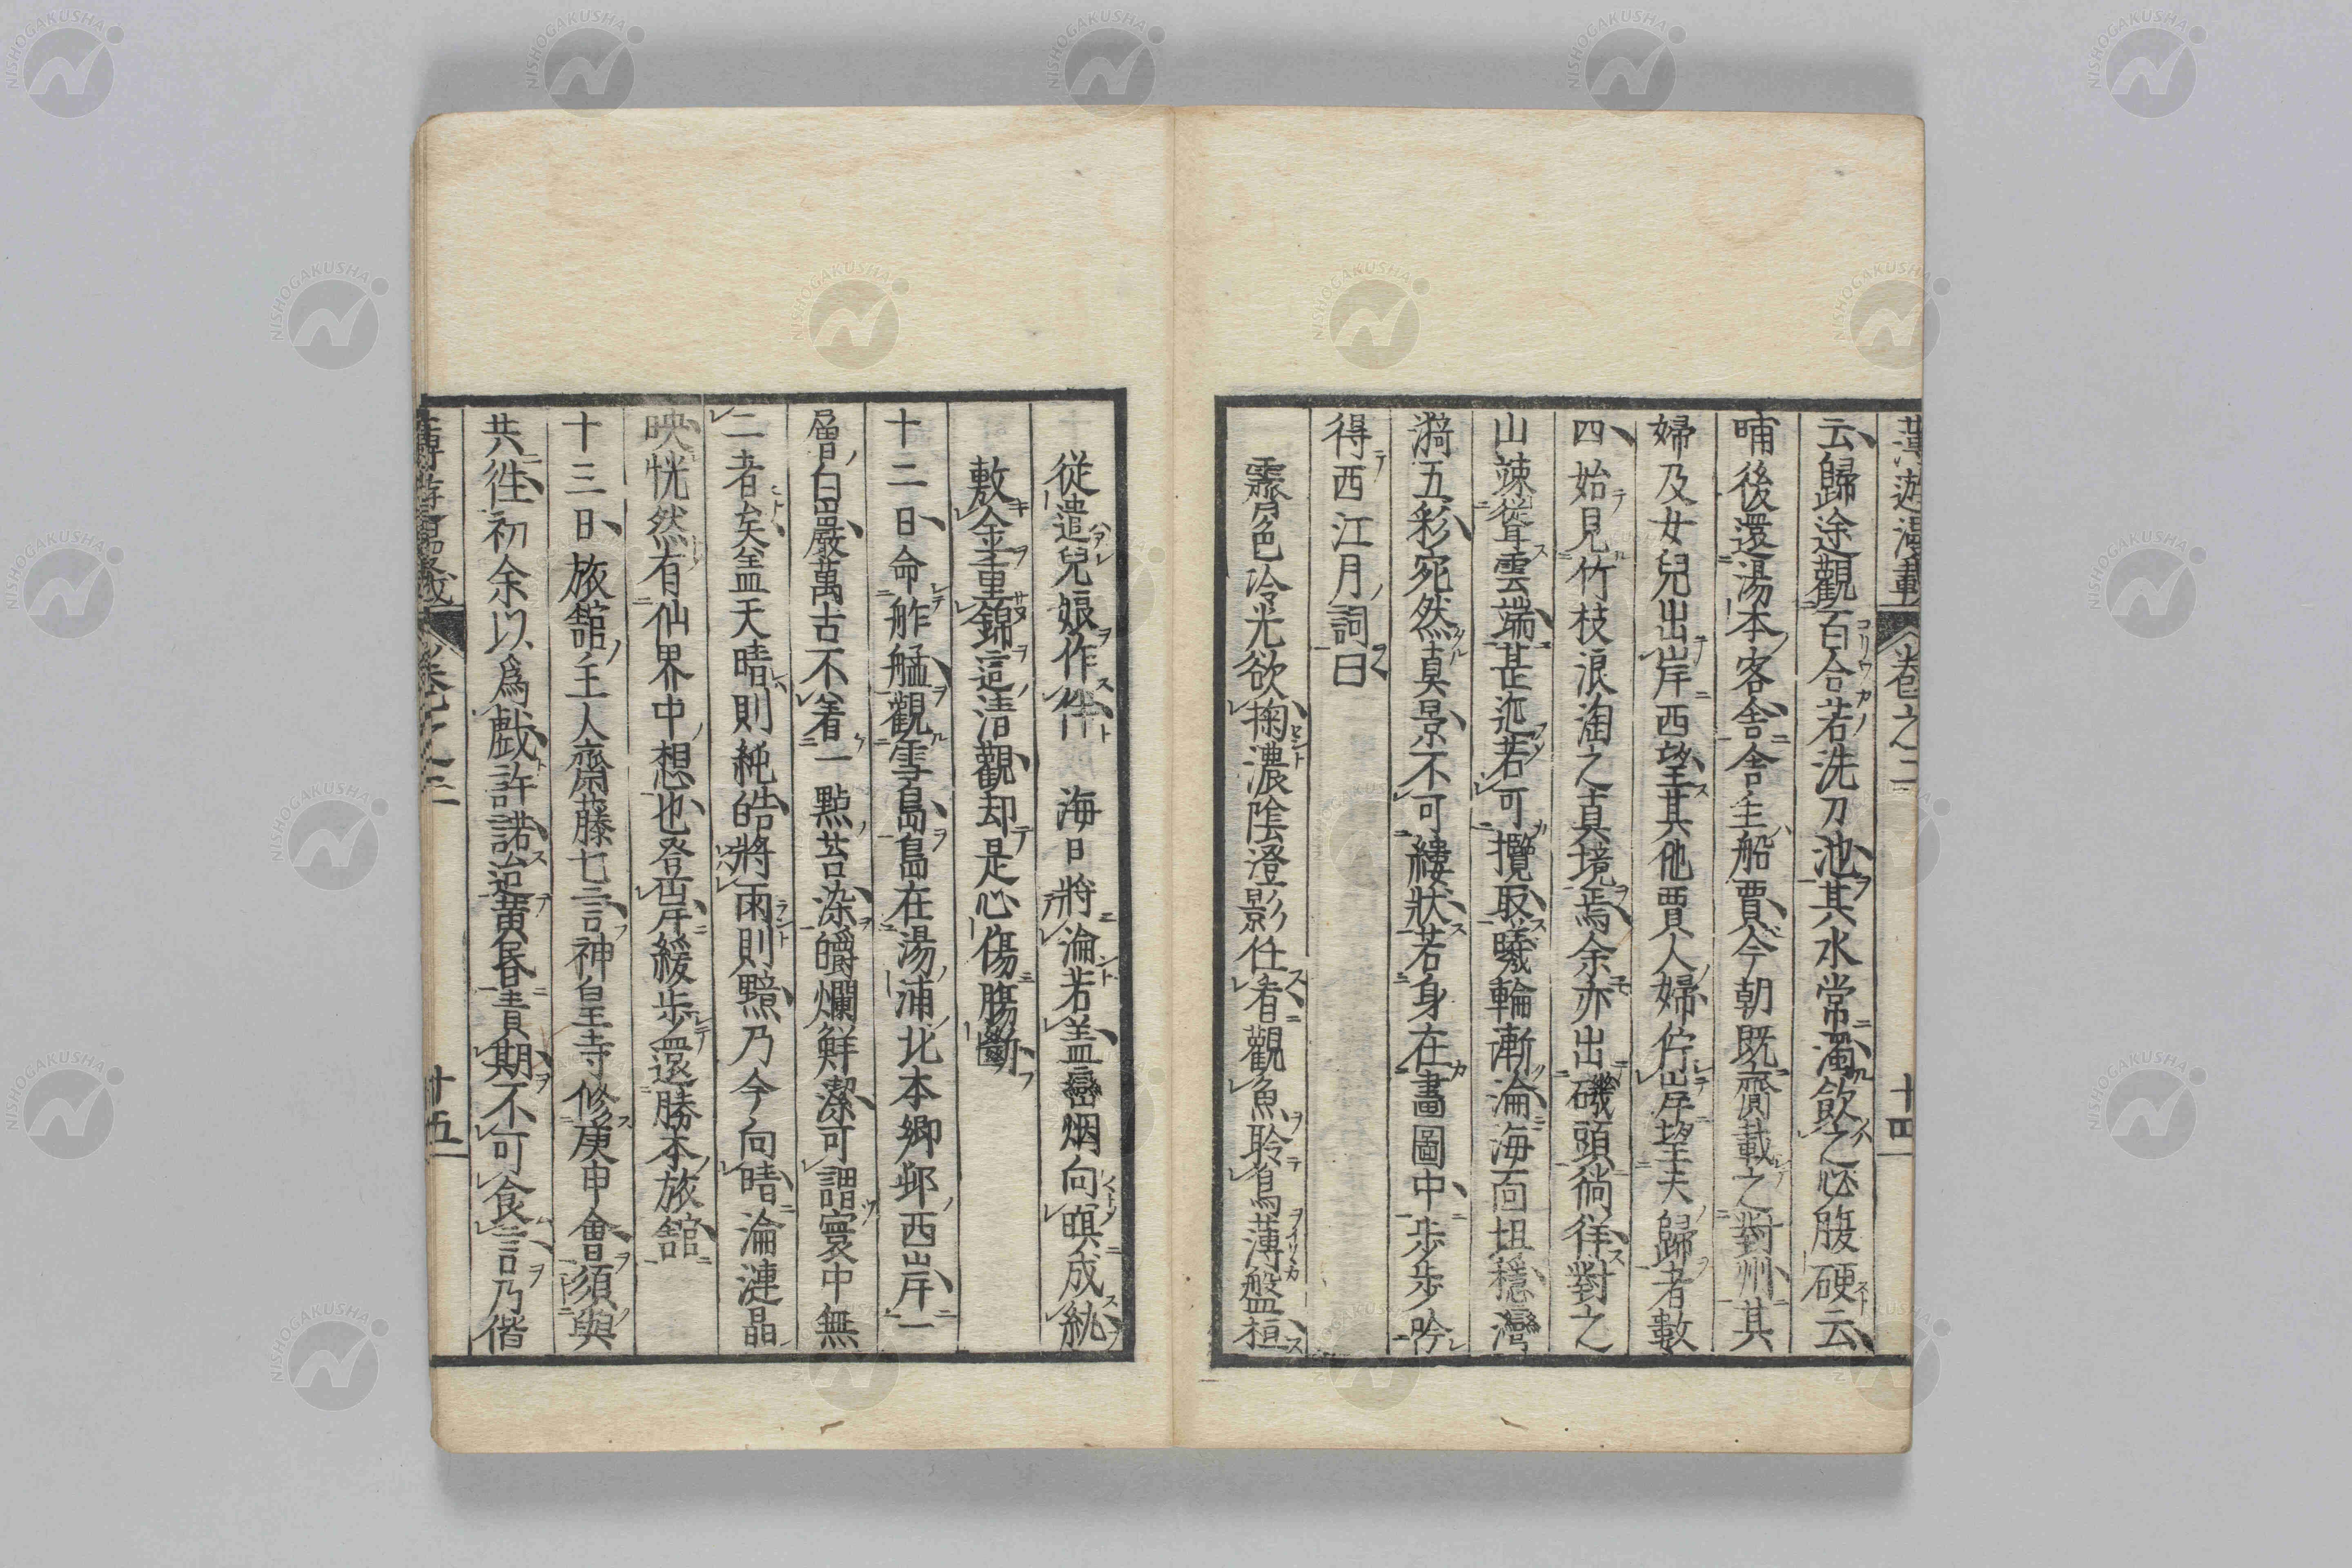 薄遊漫載 卷之二 十四
云歸途觀百合若洗刀池其水常濁飲之必腹硬云
晡後還湯本客舍舍主船賈今朝既齎載之對州其
婦及女兒出岸西望其他賈人婦佇岸望夫歸者數
四始見竹枝浪淘之真境焉余亦出磯頭徜徉對之
山竦從聳雲端甚邇若可攬取羲輪漸淪海面坦穩灣
漪五彩宛然真景不可縷狀若身在畫圖中步步吟
得西江月詞曰
霽色冷光欲掬濃陰澄影任看觀魚聆鳥薄盤桓
從遣兒娘作伴　海日將淪若盖巒烟向暝成紈
敷金重錦這清觀却是心傷膓斷
十二日命舴艋觀雪島島在湯浦北本鄉邨西岸一
層白巖萬古不着一點苔染皭爛鮮潔可謂寰中無
二者矣盖天晴則純皓將雨則黯乃今向晴淪漣晶
映恍然有仙界中想也登岸緩步還勝本旅舘
十三日旅舘主人齋藤七言神皇寺修庚申會須與
共徃初余以爲戲許諾迨黄昏責期不可食言乃偕
薄遊漫載 卷之二 十五